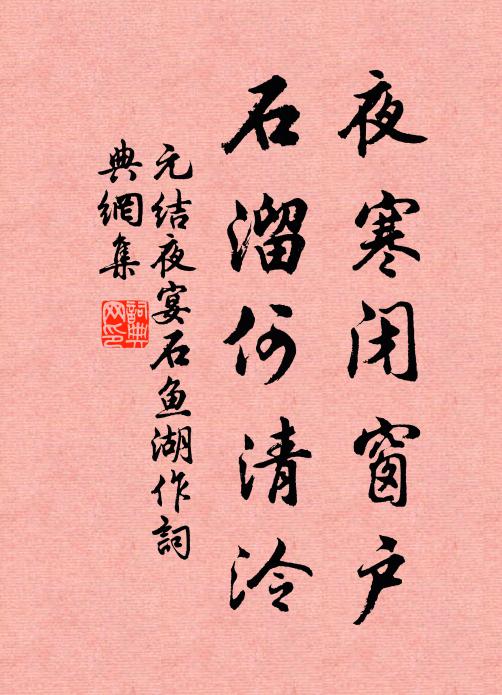 夜寒闭窗户
石溜何清泠
元结夜宴石鱼湖作詞
典網集
詞典网印